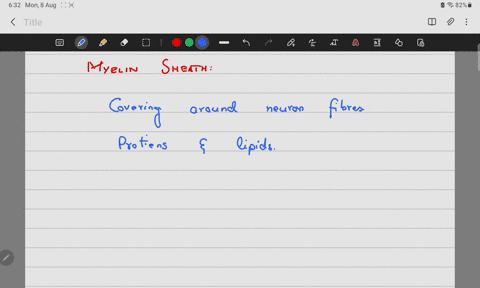 6:32 Mon, 8 Aug 82%
Title
MYELIN SHEATH:
Covering around neuron fibres
Protiens & lipids.